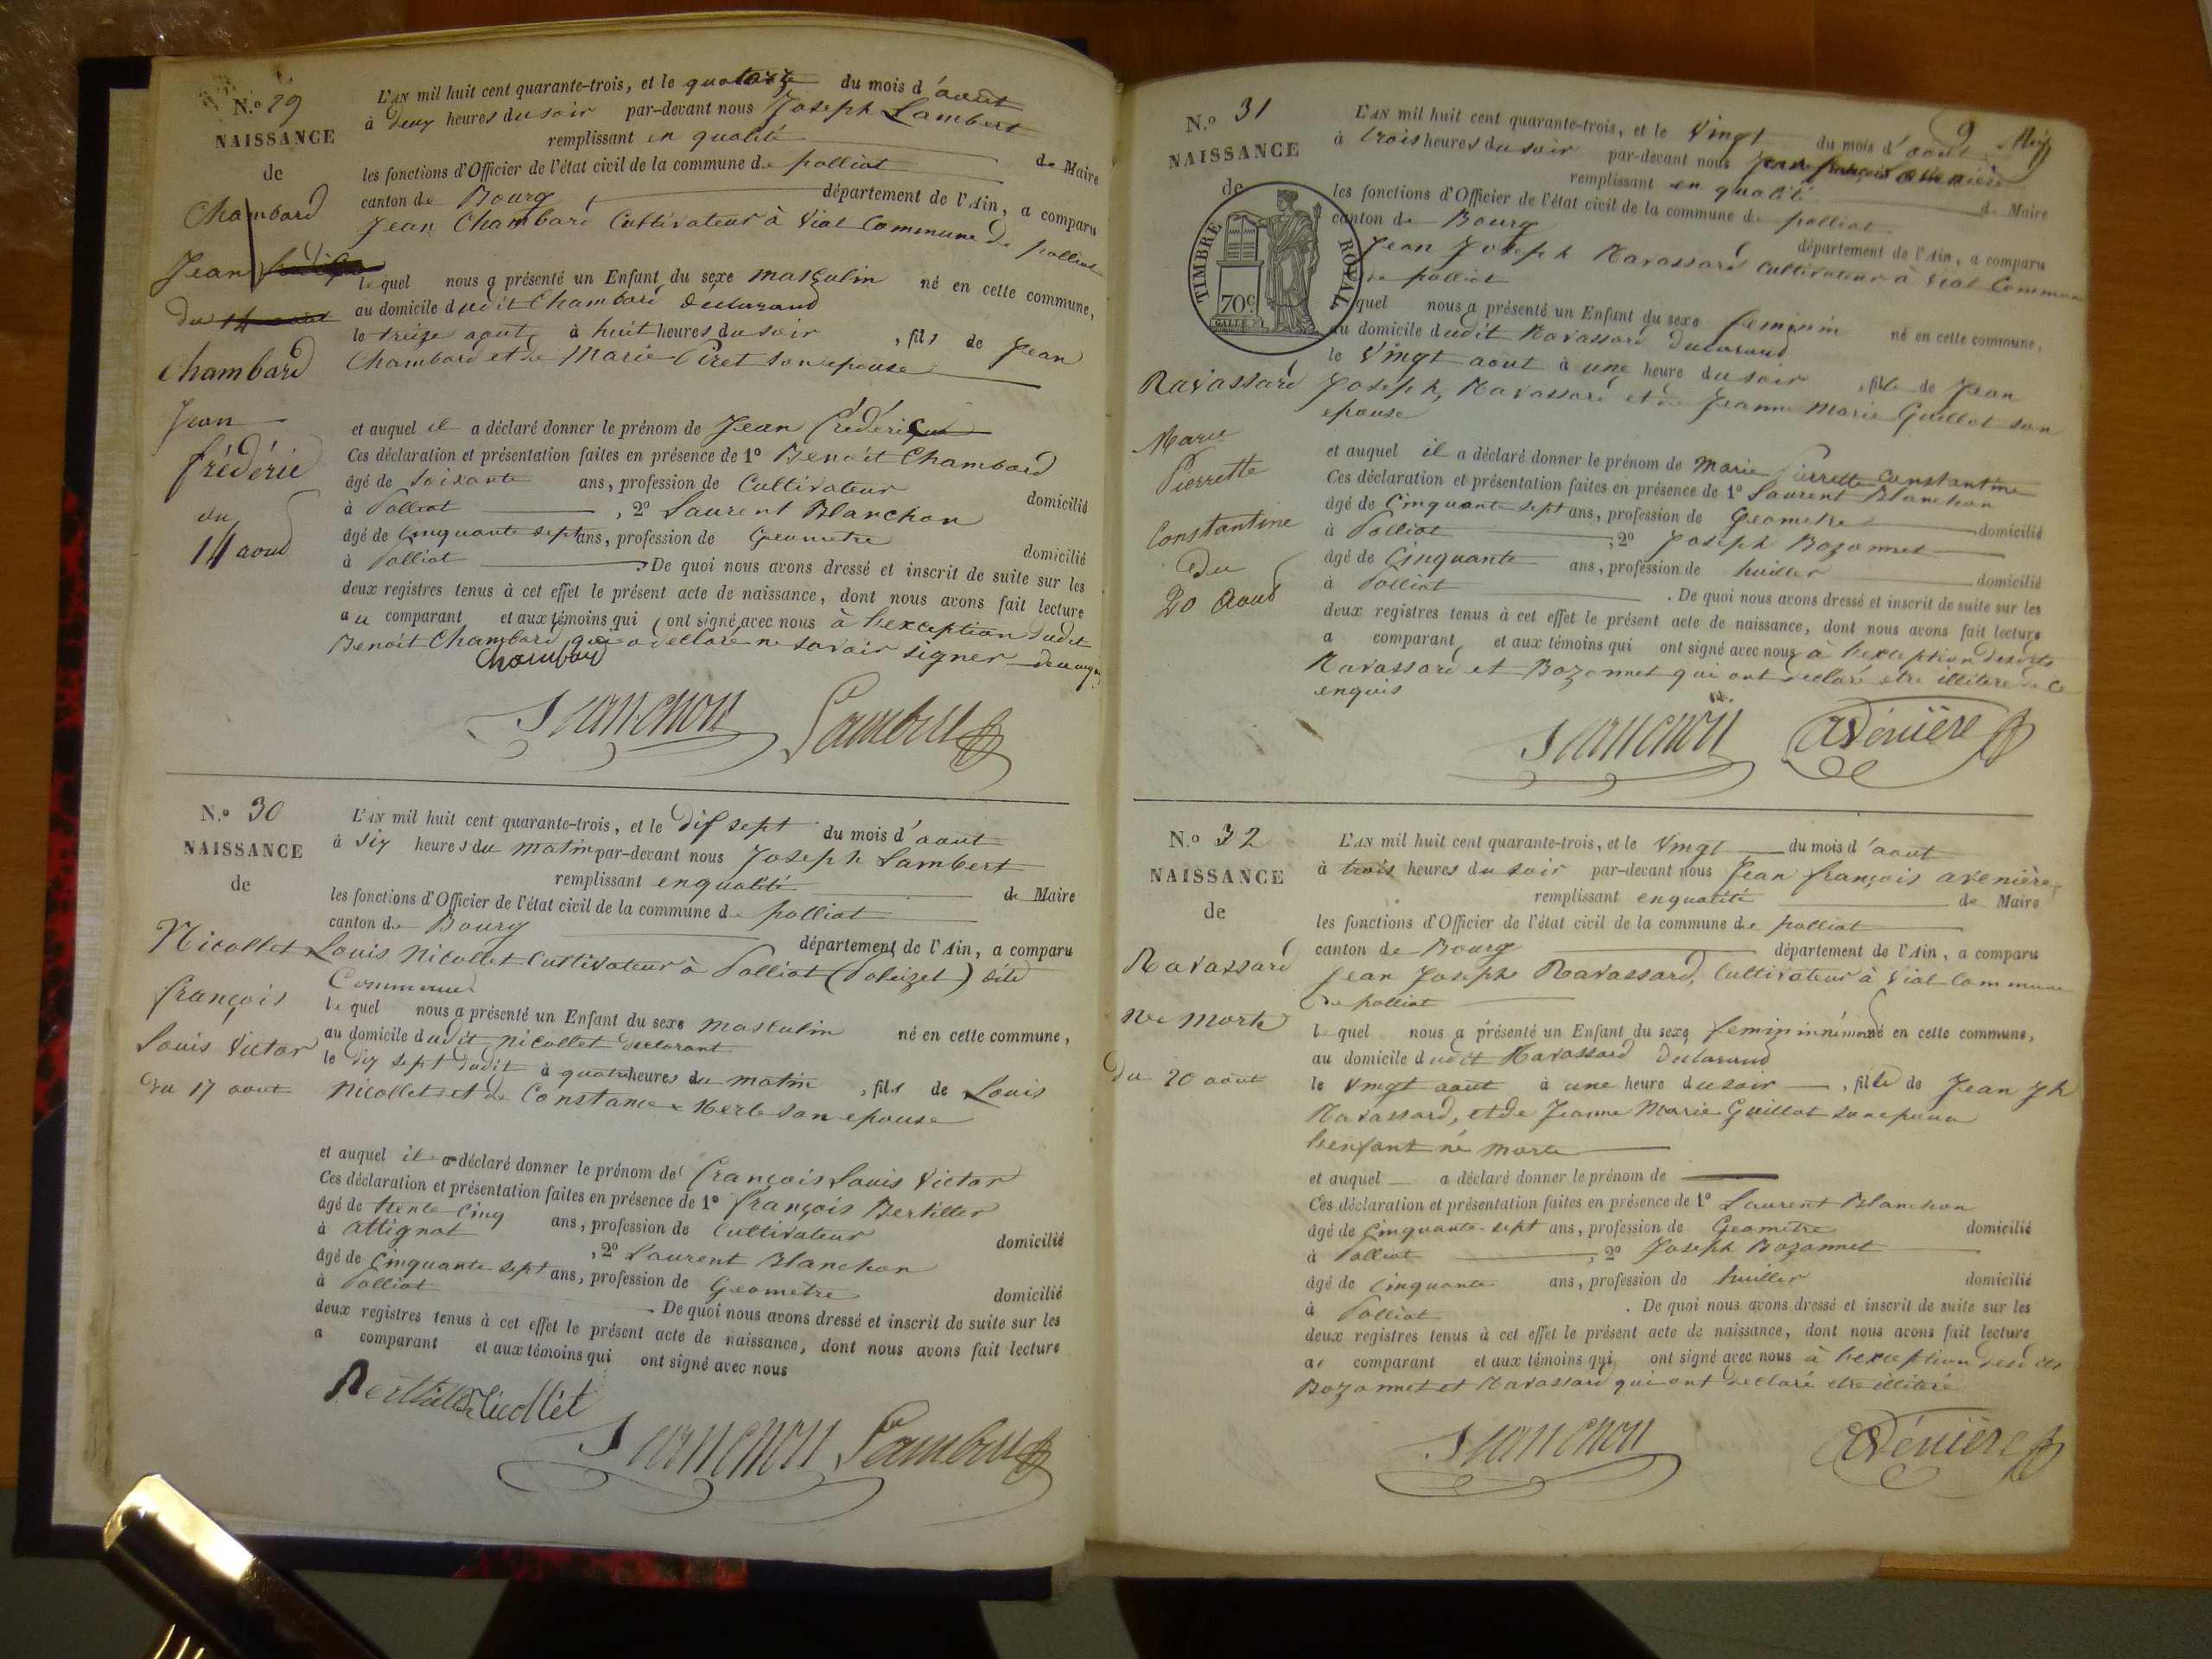 N.o 29
NAISSANCE
de
Chambard
Jean
du 14 aout
Chambard
Jean
frédéric
du
14 aout
L'AN mil huit cent quarante-trois, et le quatorze du mois d'août
à deux heures du soir par-devant nous Joseph Lambert
remplissant en qualité de Maire
les fonctions d'Officier de l'état civil de la commune de polliat
canton de Bourg département de l'Ain, a comparu
Jean Chambard Cultivateur à Vial Commune de polliat
lequel nous a présenté un Enfant du sexe masculin né en cette commune,
au domicile dudit Chambard déclarand
le treize aout, à huit heures du soir, fils de Jean
Chambard et de Marie Piret son epouse
et auquel il a déclaré donner le prénom de Jean frédéric
Ces déclaration et présentation faites en présence de 1o Benoit Chambard
âgé de soixante ans, profession de Cultivateur domicilié
à Polliat, 2o Laurent Blanchon
âgé de Cinquante sept ans, profession de Geometre domicilié
à Polliat De quoi nous avons dressé et inscrit de suite sur les
deux registres tenus à cet effet le présent acte de naissance, dont nous avons fait lecture
au comparant et aux témoins qui ont signé avec nous à l'exception dudit
Benoit Chambard qui a declaré ne savoir signer
Chambard
Blanchon Lambert
N.o 30
NAISSANCE
de
Nicollet
françois
Louis Victor
du 17 aout
L'AN mil huit cent quarante-trois, et le dif sept du mois d'aout
à six heures du matin par-devant nous Joseph Lambert
remplissant en qualité de Maire
les fonctions d'Officier de l'état civil de la commune de polliat
canton de Bourg département de l'Ain, a comparu
Louis Nicollet Cultivateur à Polliat dite
Commune
lequel nous a présenté un Enfant du sexe masculin né en cette commune,
au domicile dudit Nicollet declarant
le dix sept dudit à quatre heures du matin, fils de Louis
Nicollet et de Constance Merle son epouse
et auquel il a déclaré donner le prénom de françois Louis Victor
Ces déclaration et présentation faites en présence de 1o françois Bertiller
âgé de trente cinq ans, profession de Cultivateur domicilié
à attignat, 2o Laurent Blanchon
âgé de Cinquante sept ans, profession de Geometre domicilié
à Polliat De quoi nous avons dressé et inscrit de suite sur les
deux registres tenus à cet effet le présent acte de naissance, dont nous avons fait lecture
a comparant et aux témoins qui ont signé avec nous
Berthiller Nicollet
Blanchon Lambert
9
N.o 31
NAISSANCE
de
TIMBRE ROYAL
70c
Ravassard
Marie
Pierrette
Constantine
du
20 aout
L'AN mil huit cent quarante-trois, et le Vingt du mois d'aout
à trois heures du soir par-devant nous Jean françois avenière
remplissant en qualité de Maire
les fonctions d'Officier de l'état civil de la commune de polliat
canton de Bourg département de l'Ain, a comparu
Jean Joseph Ravassard Cultivateur à Vial Commune
de polliat
lequel nous a présenté un Enfant du sexe feminin né en cette commune,
au domicile dudit Ravassard declarand
le Vingt aout à une heure du soir, fille de Jean
Joseph Ravassard et de Jeanne Marie Guillot son
epouse
et auquel il a déclaré donner le prénom de Marie Pierrette Constantine
Ces déclaration et présentation faites en présence de 1o Laurent Blanchon
âgé de Cinquante sept ans, profession de Geometre domicilié
à Polliat, 2o Joseph Bozonnet
âgé de Cinquante ans, profession de huiller domicilié
à Polliat. De quoi nous avons dressé et inscrit de suite sur les
deux registres tenus à cet effet le présent acte de naissance, dont nous avons fait lecture
a comparant, et aux témoins qui ont signé avec nous à l'exception desdits
Ravassard et Bozonnet qui ont declaré etre illiteré de ce
enquis
Blanchon avénière
N.o 32
NAISSANCE
de
Ravassard
né morte
du 20 aout
L'AN mil huit cent quarante-trois, et le Vingt du mois d'aout
à trois heures du soir par-devant nous Jean françois avenière
remplissant en qualité de Maire
les fonctions d'Officier de l'état civil de la commune de polliat
canton de Bourg département de l'Ain, a comparu
Jean Joseph Ravassard, Cultivateur à Vial Commune
de polliat
lequel nous a présenté un Enfant du sexe feminin né en cette commune,
au domicile dudit Ravassard declarand
le Vingt aout à une heure du soir, fille de Jean Jh
Ravassard, et de Jeanne Marie Guillot son epouse
l'enfant né morte
et auquel a déclaré donner le prénom de
Ces déclaration et présentation faites en présence de 1o Laurent Blanchon
âgé de Cinquante sept ans, profession de Geometre domicilié
à Polliat, 2o Joseph Bozonnet
âgé de Cinquante ans, profession de huiller domicilié
à Polliat. De quoi nous avons dressé et inscrit de suite sur les
deux registres tenus à cet effet le présent acte de naissance, dont nous avons fait lecture
au comparant et aux témoins qui ont signé avec nous à l'exception desdits
Bozonnet et Ravassard qui ont declaré etre illiteré
Blanchon avénière